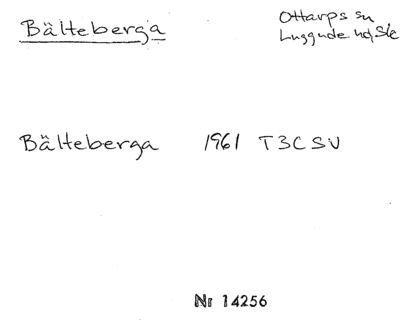 Bälteberga
Ottarps sn
Luggude hd, Sk
Bälteberga 1961 T3CSV
Nr 14256